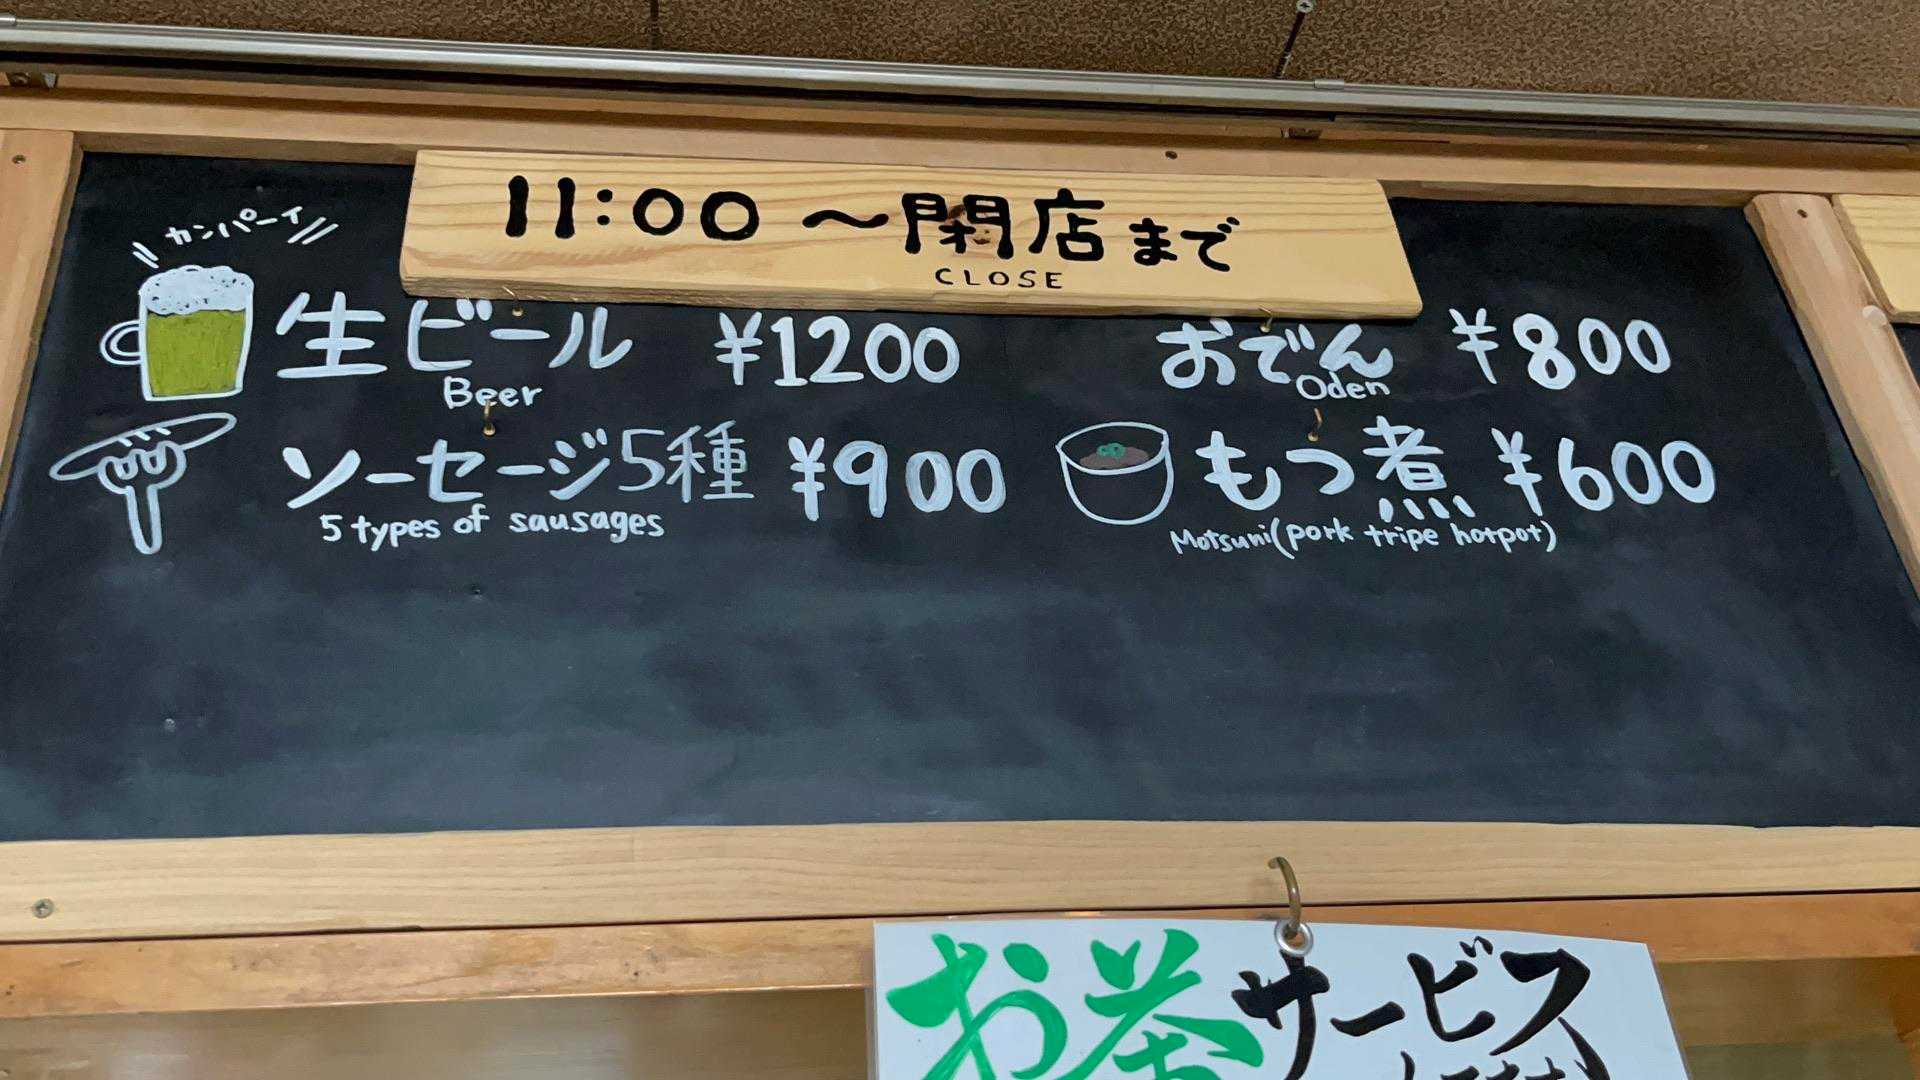 11:00 〜閉店まで
CLOSE
カンパーイ
生ビール ¥1200
Beer
ソーセージ5種 ¥900
5 types of sausages
おでん ¥800
Oden
もつ煮 ¥600
Motsuni(pork tripe hotpot)
お茶サービス